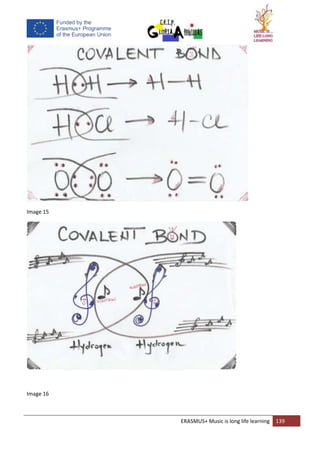 Funded by the
Erasmus+ Programme
of the European Union
C.R.I.P.
GLORIA
MUSIC IS ...
LIFE LONG
LEARNING
COVALENT BOND
H H → H - H
H Cl → H - Cl
O O → O = O
Image 15
COVALENT BOND
Hydrogen Hydrogen
Image 16
ERASMUS+ Music is long life learning 139